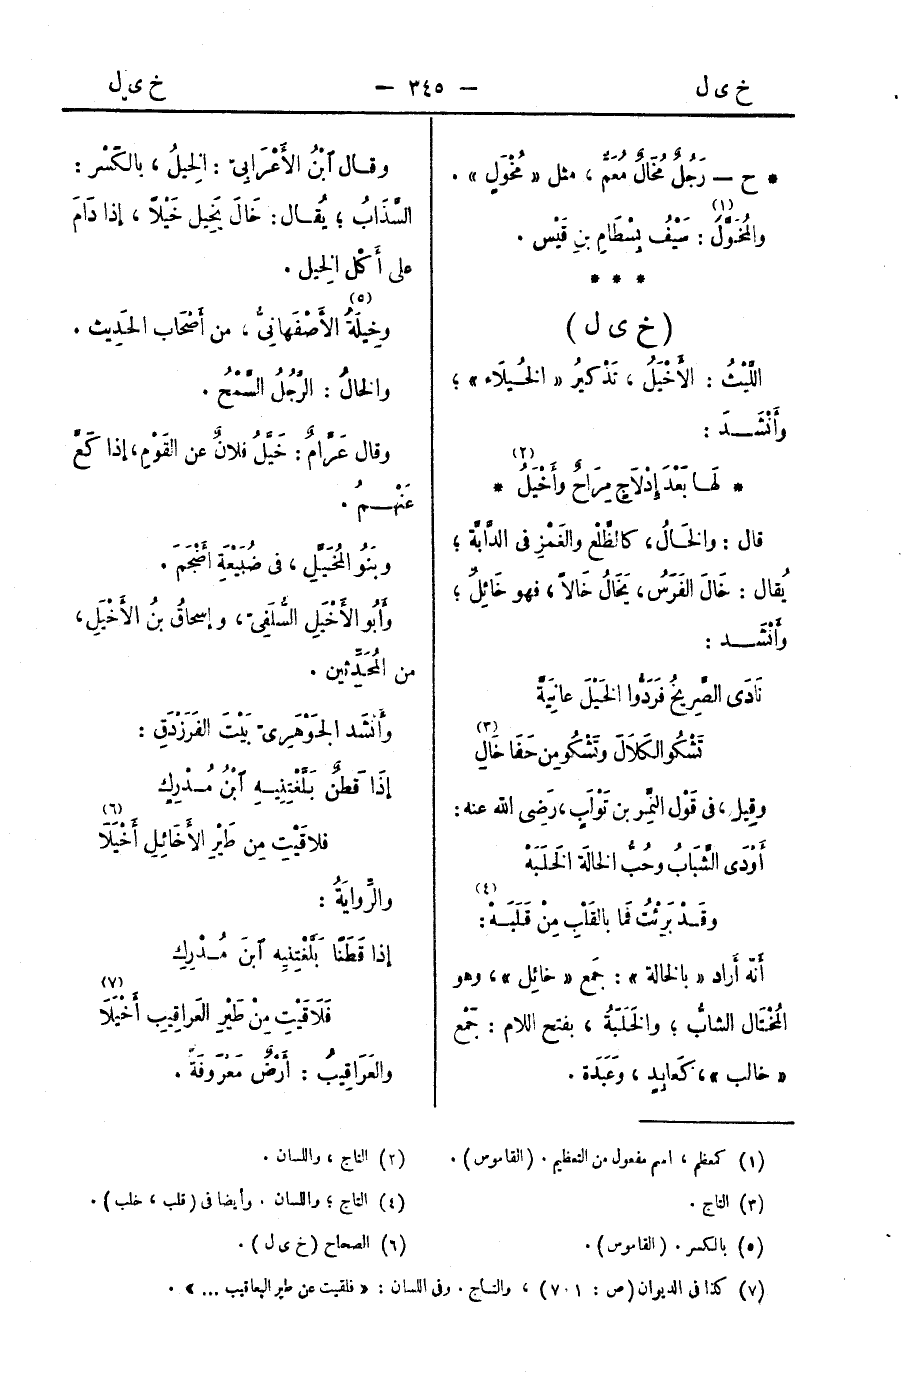 خ ى ل
— ٣٤٥ —
خ ى ل
* ح — رَجُلٌ مُخَالٌ مُعَمٌّ ، مثل « مُخْوَلٍ » .
والمُخَوَّلُ (١) : سَيْفُ بِسْطَامِ بنِ قَيْس .
* * *
( خ ى ل )
اللَّيْثُ : الأَخْيَلُ ، تَذْكِيرُ « الخُيَلَاء » ؛
وأَنْشَـد :
* لَهَـا بَعْدَ إِدْلَاجٍ مِرَاحٌ وأَخْيَلُ (٢) *
قال : والخَـالُ ، كالظَّلْعِ والغَمْزِ فى الدابَّة ؛
يُقال : خَالَ الفَرَسُ ، يَخَالُ خَالاً ، فهو خَائِلٌ ؛
وأَنْشَـد :
نَادَى الصَّرِيخُ فَرَدُّوا الخَيْلَ عانِيَةً
تَشْكُو الكَلَالَ وتَشْكُو مِن حَفَا خَالِ (٣)
وقِيل ، فى قَوْل النَّمِر بن تَوْلَبٍ ، رَضى الله عنه :
أَوْدَى الشَّبَابُ وحُبُّ الخالَةِ الخَلَبَهْ
وقَـدْ بَرِئْتُ فَما بالقَلْبِ مِنْ قَلَبَـهْ (٤) :
أَنّه أَراد « بالخالة » : جَمع « خائِل » ، وهو
المُخْتَال الشابُّ ؛ والخَلَبَةُ ، بفتح اللام : جَمْع
« خالب » ، كَعابِدٍ ، وعَبَدَة .
وقـال ٱبْنُ الأَعْرَابِىّ : الخِيلُ ، بالكَسْر :
السَّذَابُ ؛ يُقـال : خَالَ يَخِيل خَيْلاً ، إذا دَامَ
على أَكْل الخِيل .
وخِيلَةُ (٥) الأَصْفَهانِىُّ ، من أَصْحَاب الحَدِيث .
والخالُ : الرَّجُلُ السَّمْحُ .
وقال عَرَّامٌ : خَيَّلَ فلانٌ عن القَوْمِ ، إذا كَعَّ
عَنْهُـمْ .
وبَنُو المُخَيَّلِ ، فى ضُبَيْعَةِ أَضْجَمَ .
وأَبُو الأَخْيَلِ السُّلَفِىّ ، وإسحاقُ بنُ الأَخْيَلِ ،
من المُحَدِّثين .
وأَنشَد الجَوْهَرِىّ بَيْتَ الفَرَزْدَقِ :
إذَا قَطَنٌ بَلَّغْتِنِيـهِ ٱبْنُ مُـدْرِكٍ
فلاقَيْتِ مِن طَيْرِ الأَخَائِلِ أَخْيَلَا (٦)
والرِّوايَةُ :
إذا قَطَنًا بَلَّغْتِنِيهِ ٱبنَ مُـدْرِكٍ
فَلَاقَيْتِ مِنْ طَيْرِ العَراقِيبِ أَخْيَلَا (٧)
والعَرَاقِيبُ : أَرْضٌ مَعْرُوفَةٌ .
(١) كمعظم ، اسم مفعول من التعظيم . (القاموس) .
(٢) التاج ، واللسان .
(٣) التاج .
(٤) التاج ؛ واللسان . وأيضا فى (قلب ، خلب) .
(٥) بالكسر . (القاموس) .
(٦) الصحاح (خ ى ل) .
(٧) كذا فى الديوان (ص : ٧٠١) ، والتـاج . وفى اللسان : « فلقيت عن طير اليعاقيب ... » .